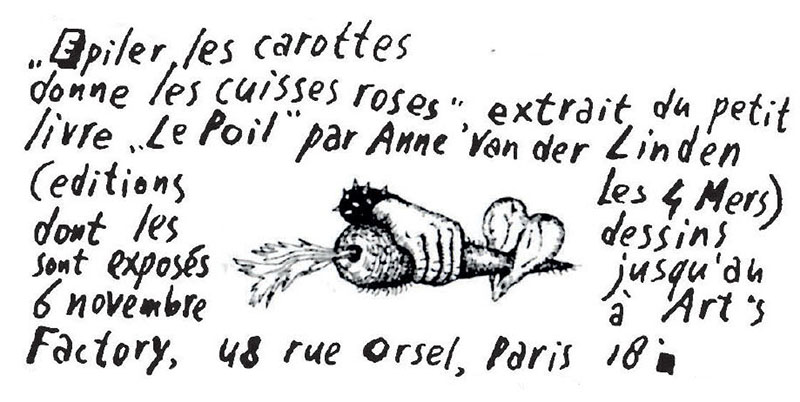 „Epiler les carottes
donne les cuisses roses", extrait du petit
livre „Le Poil" par Anne Van der Linden
(editions Les 4 Mers)
dont les dessins
sont exposés jusqu'au
6 novembre à Art's
Factory, 48 rue Orsel, Paris 18